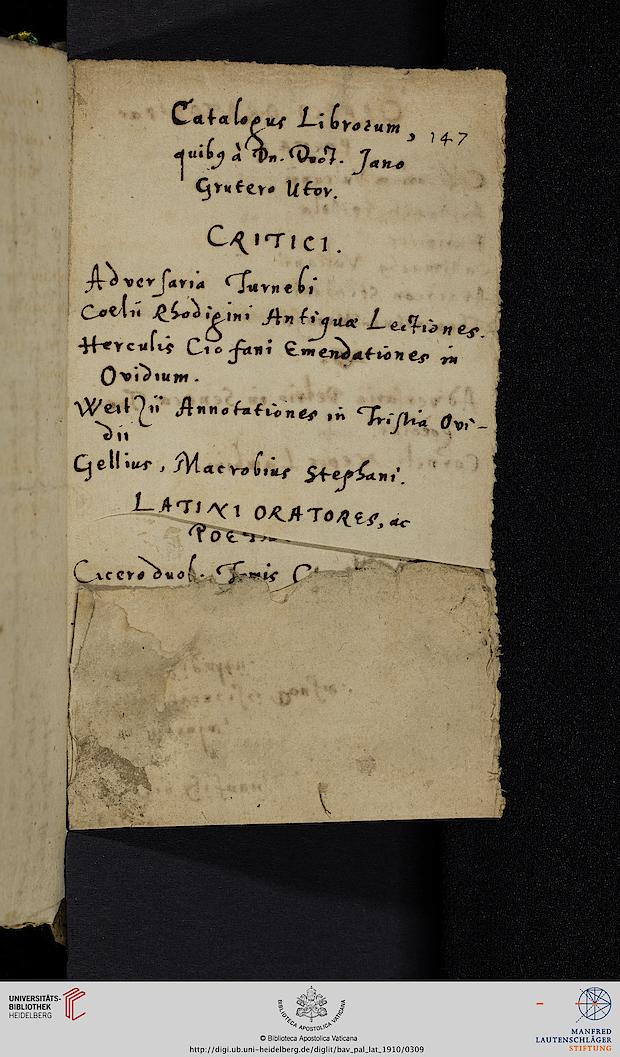 Catalogus Librorum, 147
quibꝰ à Dn. Doct. Jano
Grutero Utor.
CRITICI.
Adversaria Turnebi
Coelii Rhodigini Antiquæ Lectiones.
Herculis Ciofani Emendationes in
Ovidium.
Weitzii Annotationes in Tristia Ovi-
dii
Gellius, Macrobius Stephani.
LATINI ORATORES, ac
Cicero duob.
UNIVERSITÄTS-
BIBLIOTHEK
HEIDELBERG
BIBLIOTECA APOSTOLICA VATICANA
© Biblioteca Apostolica Vaticana
http://digi.ub.uni-heidelberg.de/diglit/bav_pal_lat_1910/0309
MANFRED
LAUTENSCHLÄGER
STIFTUNG